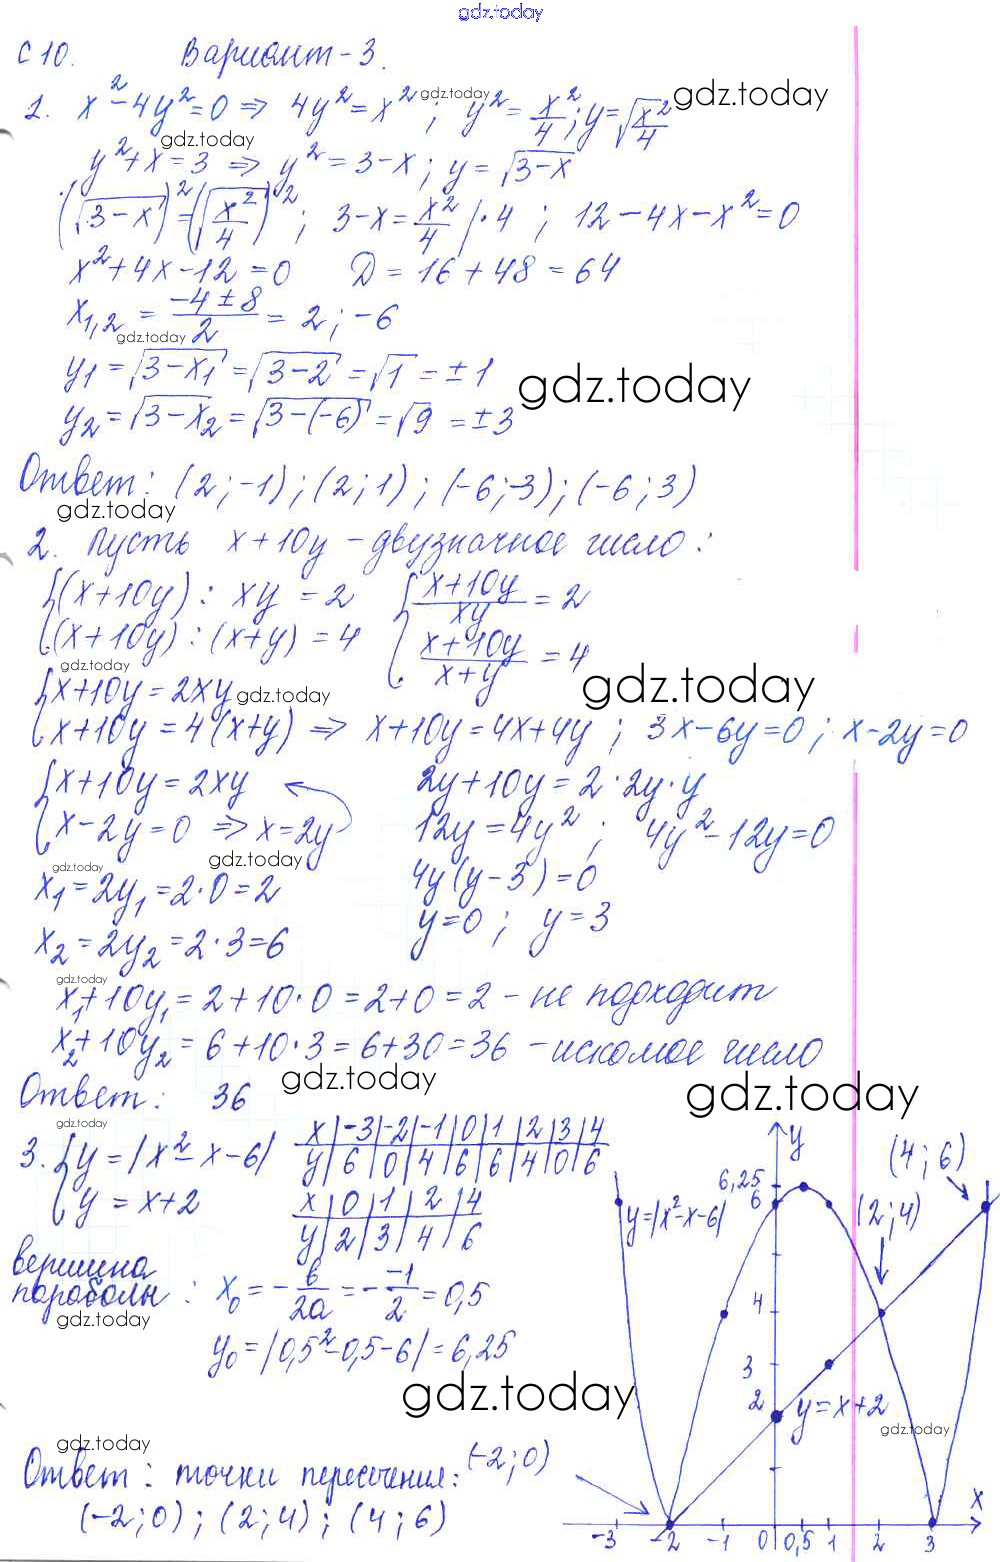 gdz.today
С 10. Вариант-3.
1. x²-4y²=0 ⇒ 4y²=x² ; y²=x²/4 ; y=√(x²/4)
gdz.today gdz.today
gdz.today
y²+x=3 ⇒ y²=3-x ; y=√(3-x)
(√(3-x))²=(√(x²/4))² ; 3-x=x²/4 |·4 ; 12-4x-x²=0
x²+4x-12=0 D=16+48=64
x₁,₂ = (-4±8)/2 = 2 ; -6
gdz.today
y₁=√(3-x₁)=√(3-2)=√1=±1
gdz.today
y₂=√(3-x₂)=√(3-(-6))=√9=±3
Ответ: (2;-1);(2;1);(-6;-3);(-6;3)
gdz.today
2. Пусть x+10y - двузначное число:
{(x+10y) : xy = 2 {(x+10y)/xy = 2
(x+10y) : (x+y) = 4 (x+10y)/(x+y) = 4
gdz.today gdz.today
{x+10y=2xy
gdz.today
x+10y=4(x+y) ⇒ x+10y=4x+4y ; 3x-6y=0 ; x-2y=0
{x+10y=2xy 2y+10y=2·2y·y
x-2y=0 ⇒ x=2y 12y=4y² ; 4y²-12y=0
gdz.today gdz.today
x₁=2y₁=2·0=2 4y(y-3)=0
x₂=2y₂=2·3=6 y=0 ; y=3
gdz.today
x₁+10y₁=2+10·0=2+0=2 - не подходит
x₂+10y₂=6+10·3=6+30=36 - искомое число
gdz.today gdz.today
Ответ: 36
gdz.today
3. {y=|x²-x-6|
y=x+2
x|-3|-2|-1|0|1|2|3|4
y|6|0|4|6|6|4|0|6
x|0|1|2|4
y|2|3|4|6
вершина
параболы : x₀=-b/2a=-(-1)/2=0,5
gdz.today
y₀=|0,5²-0,5-6|=6,25
gdz.today
gdz.today
Ответ: точки пересечения:
(-2;0) ; (2;4) ; (4;6)
y
(4;6)
6,25
6
y=|x²-x-6|
(2;4)
4
3
2
y=x+2
gdz.today
(-2;0)
x
-3 -2 -1 0 0,5 1 2 3